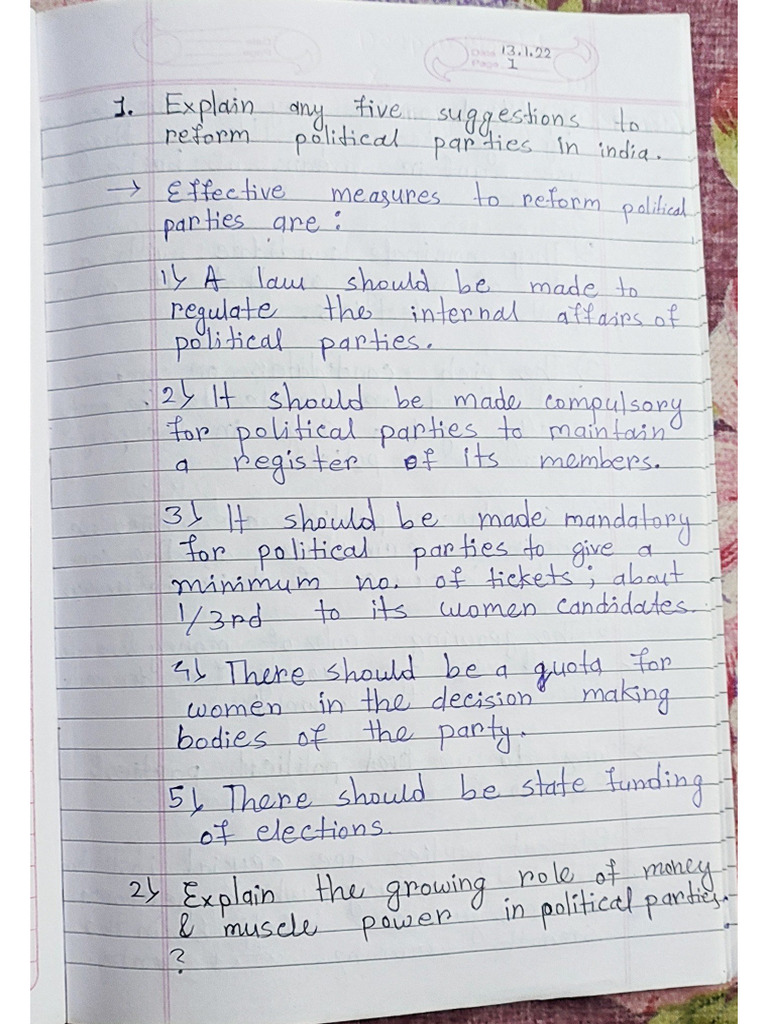 Date 13.1.22
Page 1
1. Explain any five suggestions to
reform political parties in india.
→ Effective measures to reform political
parties are:
1) A law should be made to
regulate the internal affairs of
political parties.
2) It should be made compulsory
for political parties to maintain
a register of its members.
3) It should be made mandatory
for political parties to give a
minimum no. of tickets; about
1/3rd to its women candidates.
4) There should be a quota for
women in the decision making
bodies of the party.
5) There should be state funding
of elections.
2) Explain the growing role of money
& muscle power in political parties.
?